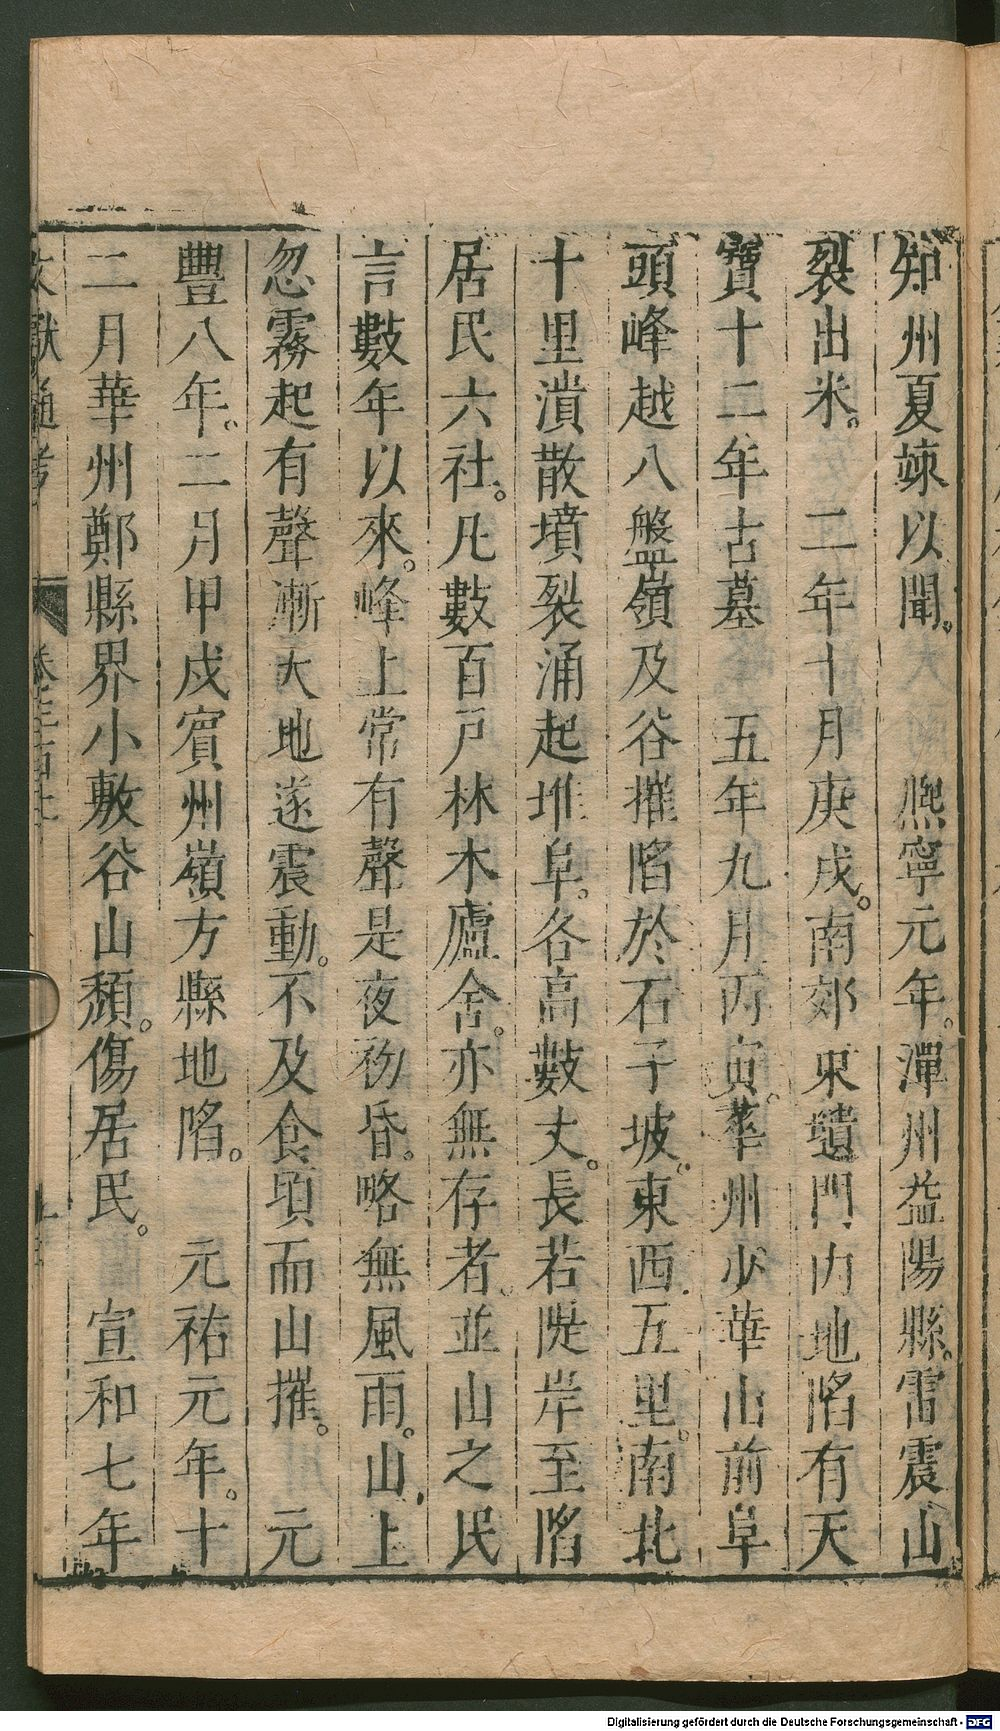 知州夏竦以聞。　熙寧元年。潭州益陽縣。雷震山
裂出米。　二年十月庚戌。南郊東壝門內地陷有天
寶十二年古墓　五年九月丙寅。華州少華山前阜
頭峰越八盤嶺及谷摧陷於石子坡。東西五里。南北
十里潰散墳裂涌起堆阜。各高數丈。長若陡岸至陷
居民六社。凡數百戶林木廬舍。亦無存者。並山之民
言數年以來。峰上常有聲是夜初昏。略無風雨。山上
忽霧起有聲漸大地遂震動。不及食頃而山摧。　元
豐八年。二月甲戌賓州嶺方縣地陷。　元祐元年。十
二月華州鄭縣界小敷谷山頹。傷居民。　宣和七年
文獻通考　卷三百
Digitalisierung gefördert durch die Deutsche Forschungsgemeinschaft - DFG